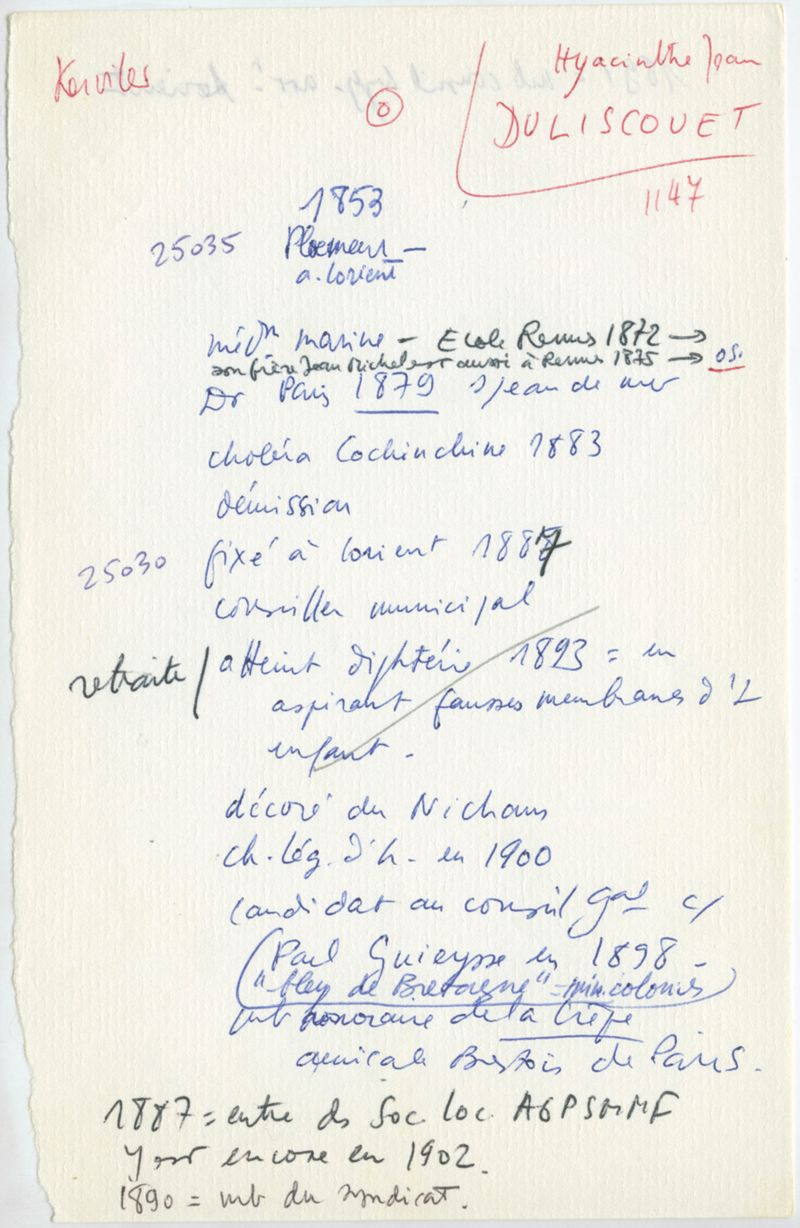 Kerviler
Hyacinthe Jean
0
DULISCOUET
1147
1853
25035 Ploemeur —
a. Lorient
méd^n marine — Ecole Rennes 1872 →
son frère Jean Michel est aussi à Rennes 1875 → os.
Dr Paris 1879 s/jean de mer
choléra Cochinchine 1883
démission
25030 fixé à Lorient 1887
conseiller municipal
retraite / atteint diphtérie 1893 = en
aspirant fausses membranes d'1
enfant.
décoré du Nicham
ch. lég. d'h. en 1900
candidat au conseil gal c/
(Paul Guieysse en 1898 —
"bleu de Bretagne" = min. colonies)
mb honoraire de la Crêpe
amicale Brestois de Paris.
1887 = entre ds Soc. loc. AGPSMMF
y est encore en 1902.
1890 = mb du syndicat.